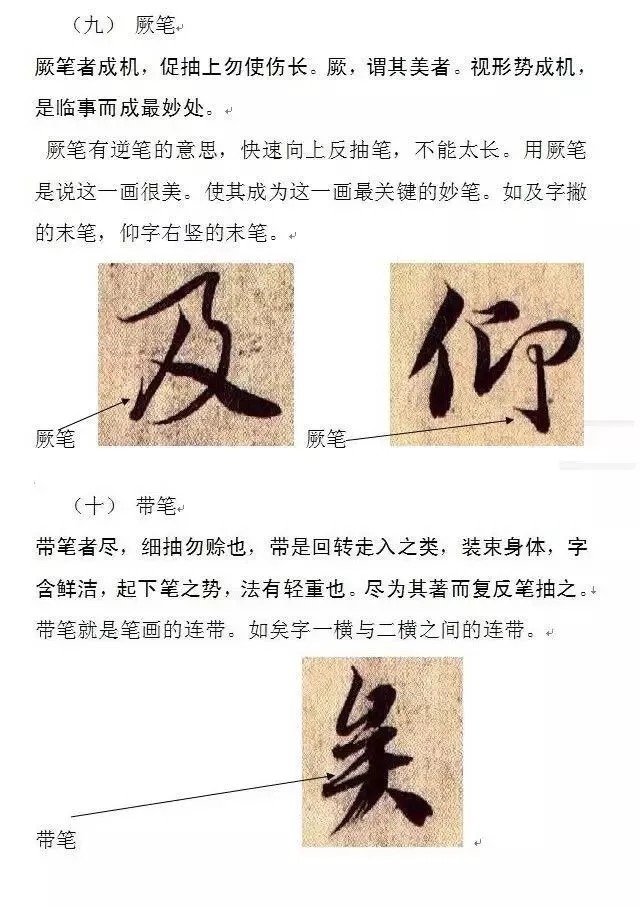 （九） 厥笔
厥笔者成机，促抽上勿使伤长。厥，谓其美者。视形势成机，
是临事而成最妙处。
厥笔有逆笔的意思，快速向上反抽笔，不能太长。用厥笔
是说这一画很美。使其成为这一画最关键的妙笔。如及字撇
的末笔，仰字右竖的末笔。
及 仰
厥笔 厥笔
（十） 带笔
带笔者尽，细抽勿赊也，带是回转走入之类，装束身体，字
含鲜洁，起下笔之势，法有轻重也。尽为其著而复反笔抽之。
带笔就是笔画的连带。如矣字一横与二横之间的连带。
矣
带笔